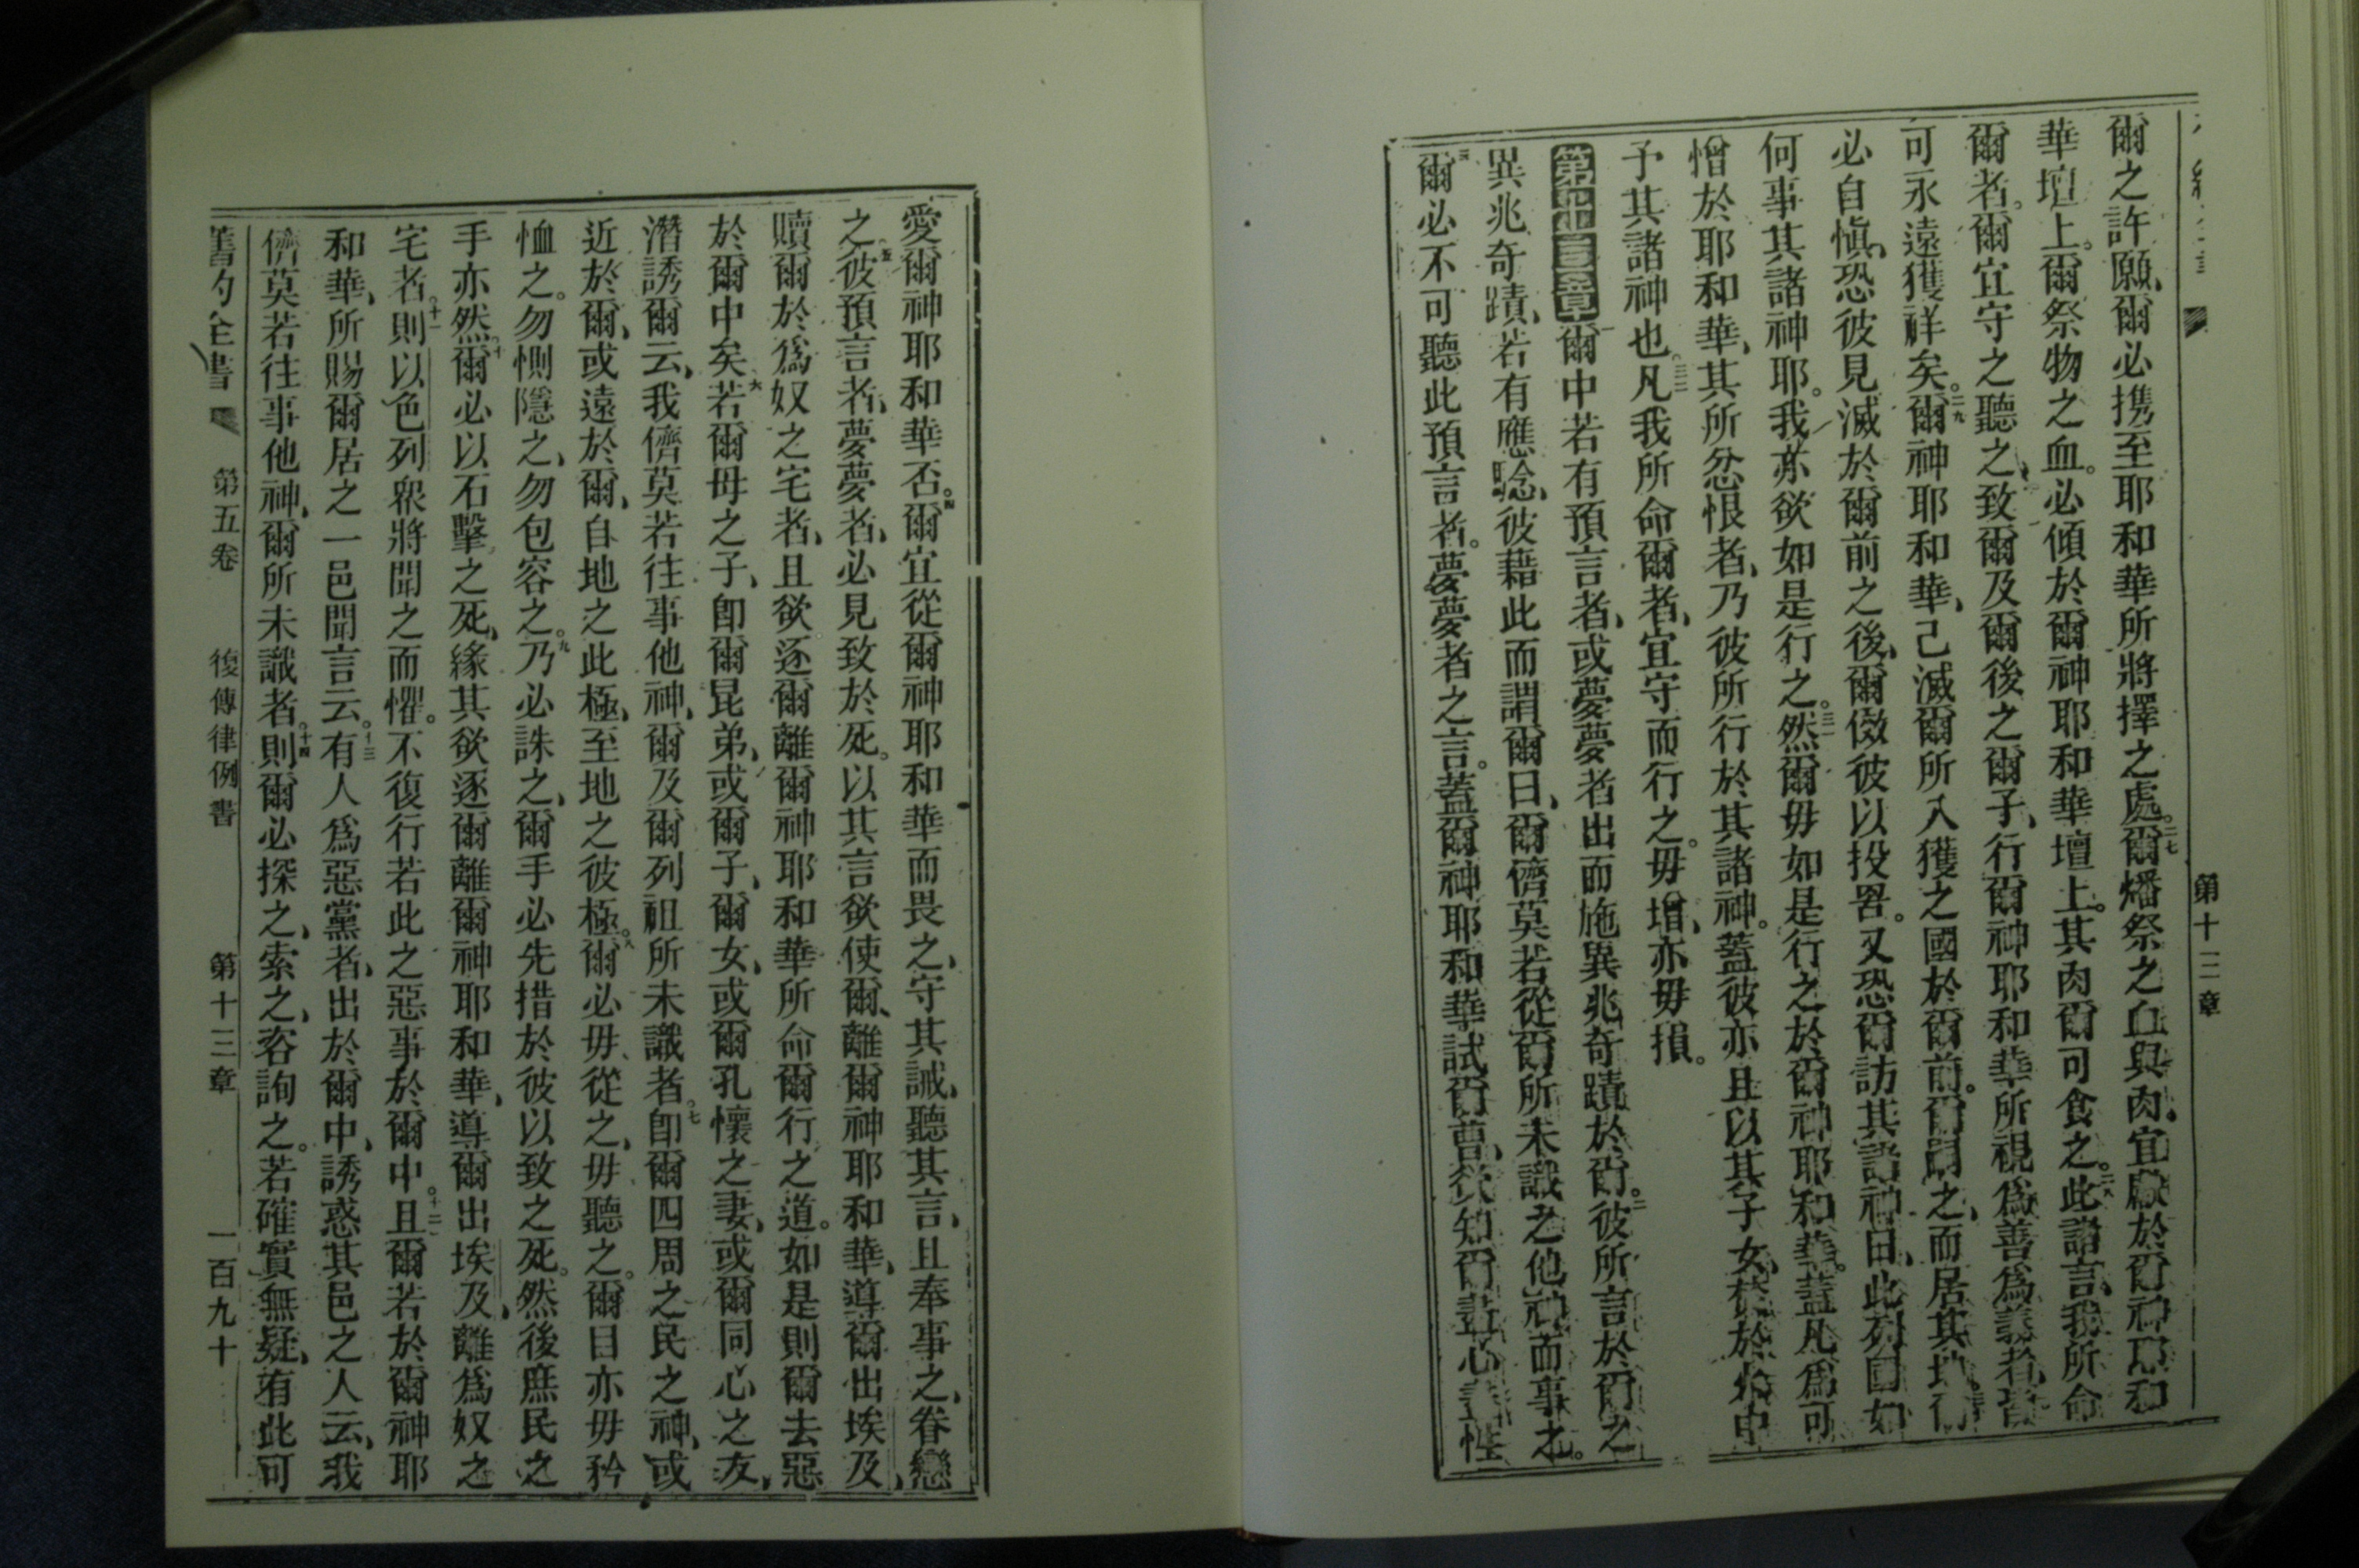 第十二章
爾之許願、爾必携至耶和華所將擇之處。二七爾燔祭之血與肉、宜獻於爾神耶和
華壇上。爾祭物之血。必傾於爾神耶和華壇上。其肉爾可食之。二八此諸言、我所命
爾者。爾宜守之聽之、致爾及爾後之爾子、行爾神耶和華所視為善為義者、皆
可永遠獲祥矣。二九爾神耶和華、己滅爾所入獲之國於爾前。爾嗣之、而居其地、
必自愼、恐彼見滅於爾前之後、爾傚彼以投罟。又恐爾訪其諸神曰、此列國如
何事其諸神耶。我亦欲如是行之。三一然爾毋如是行之於爾神耶和華。蓋凡為可
憎於耶和華、其所忿恨者、乃彼所行於其諸神。蓋彼亦且以其子女、焚於火中
予其諸神也。三二凡我所命爾者、宜守而行之。毋增、亦毋損。
第十三章爾中若有預言者、或夢夢者出而施異兆奇蹟於爾。二彼所言於爾之
異兆奇蹟、若有應騐、彼藉此而謂爾曰、爾儕莫若從爾所未識之他神而事之。
三爾必不可聽此預言者。夢夢者之言。蓋爾神耶和華試爾曹、欲知爾盡心盡性
愛爾神耶和華否。四爾宜從爾神耶和華而畏之、守其誡、聽其言、且奉事之、眷戀
之。五彼預言者、夢夢者、必見致於死。以其言欲使爾、離爾神耶和華、導爾出埃及、
贖爾於為奴之宅者、且欲逐爾離爾神耶和華所命爾行之道。如是則爾去惡
於爾中矣。六若爾毋之子、卽爾昆弟、或爾子、爾女、或爾孔懷之妻、或爾同心之友、
潛誘爾云、我儕莫若往事他神、爾及爾列祖所未識者。七卽爾四周之民之神、或
近於爾、或遠於爾、自地之此極、至地之彼極。八爾必毋從之、毋聽之。爾目亦毋矜
恤之。勿惻隱之、勿包容之。九乃必誅之、爾手必先措於彼以致之死。然後庶民之
手亦然。十爾必以石擊之死、緣其欲逐爾離爾神耶和華、導爾出埃及、離為奴之
宅者。十一則以色列眾將聞之而懼。不復行若此之惡事於爾中。十二且爾若於爾神耶
和華、所賜爾居之一邑聞言云。十三有人為惡黨者、出於爾中、誘惑其邑之人云、我
儕莫若往事他神、爾所未識者。十四則爾必探之、索之、咨詢之。若確實無疑、有此可
舊約全書 第五卷 復傳律例書 第十三章 一百九十